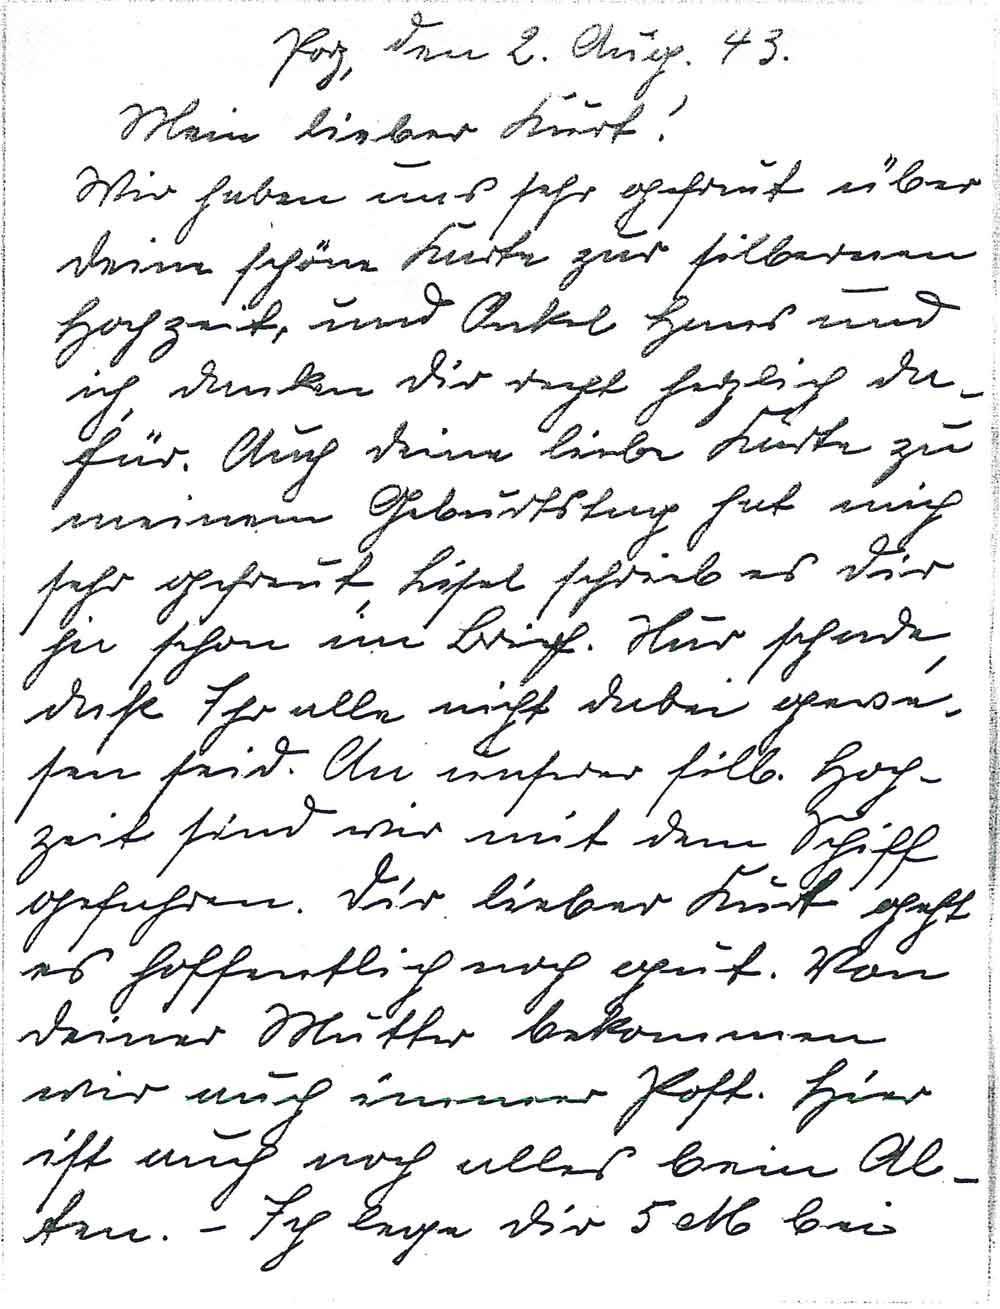 Porz, den 2. Aug. 43.
Mein lieber Kurt!
Wir haben uns sehr gefreut über
deine schöne Karte zur silbernen
Hochzeit, und Onkel Hans und
ich danken dir recht herzlich da-
für. Auch deine liebe Karte zu
meinem Geburtstag hat mich
sehr gefreut, Liesel schrieb es dir
ja schon im Brief. Nur schade,
daß Ihr alle nicht dabei gewe-
sen seid. An unserer silb. Hoch-
zeit sind wir mit dem Schiff
gefahren. Dir lieber Kurt geht
es hoffentlich noch gut. Von
deiner Mutter bekommen
wir auch immer Post. Hier
ist auch noch alles beim Al-
ten. – Ich lege dir 5 M bei